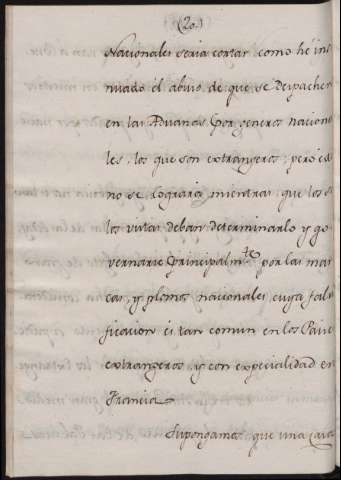 (20.)
Nacionales seria cortar como hé ins
nuado él abuso de que se despachen
en las Aduanas por generos naciona
les, los que son extrangeros; pero es
no se lograria mientras que los
los vistas deban determinarlo y go
vernarse principalm.te por las mar
cas, y plomos nacionales cuya fals
ficacion es tan comun en los Paises
extrangeros, y con especialidad en
Francia.
Supongamos que una Casa